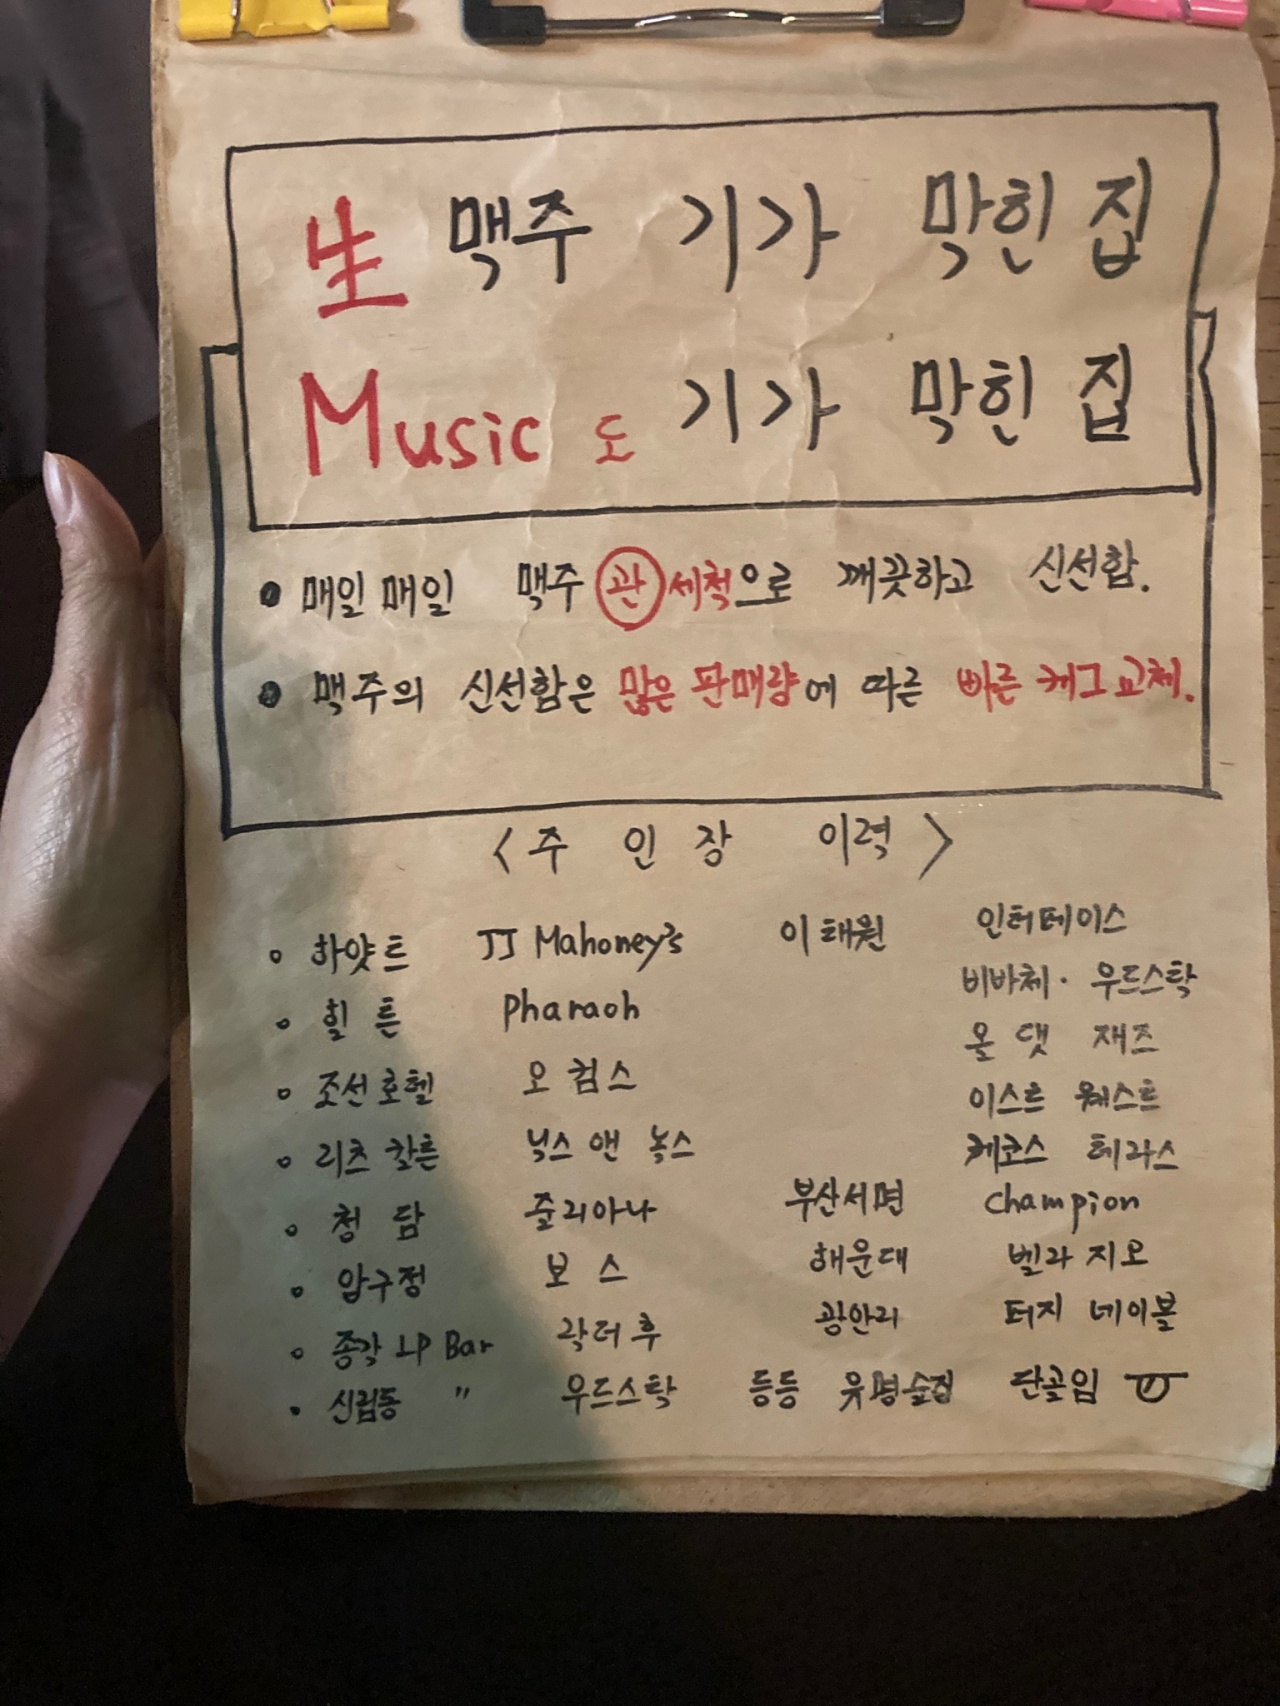 生 맥주 기가 막힌 집
Music 도 기가 막힌 집
• 매일매일 맥주 관 세척으로 깨끗하고 신선함.
• 맥주의 신선함은 많은 판매량에 따른 빠른 케그 교체.
〈주 인 장 이력〉
◦ 하얏트 JJ Mahoney's 이태원 인터테이스
◦ 힐 튼 Pharaoh 비바체 · 우드스탁
◦ 조선호텔 오 컴스 올 댓 재즈
◦ 리츠 칼튼 닉스 앤 녹스 이스트 웨스트
게코스 테라스
◦ 청 담 줄리아나 부산서면 Champion
◦ 압구정 보 스 해운대 벨라 지오
◦ 종각 LP Bar 락더후 광안리 터지 네이블
◦ 신림동 〃 우드스탁 등등 유명술집 단골임